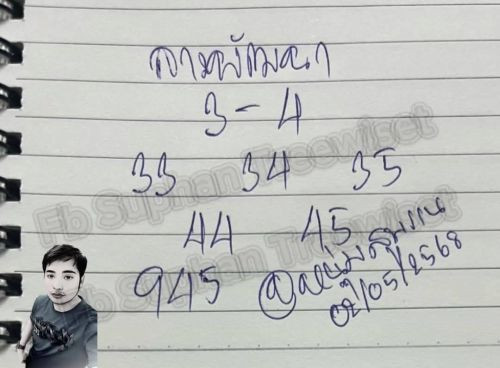 ลาวพัฒนา
3-4
33 34 35
44 45
945 @หนุ่มสุพรรณ
02/05/2568
Fb Suphan Treewiset
Fb Suphan Treewiset